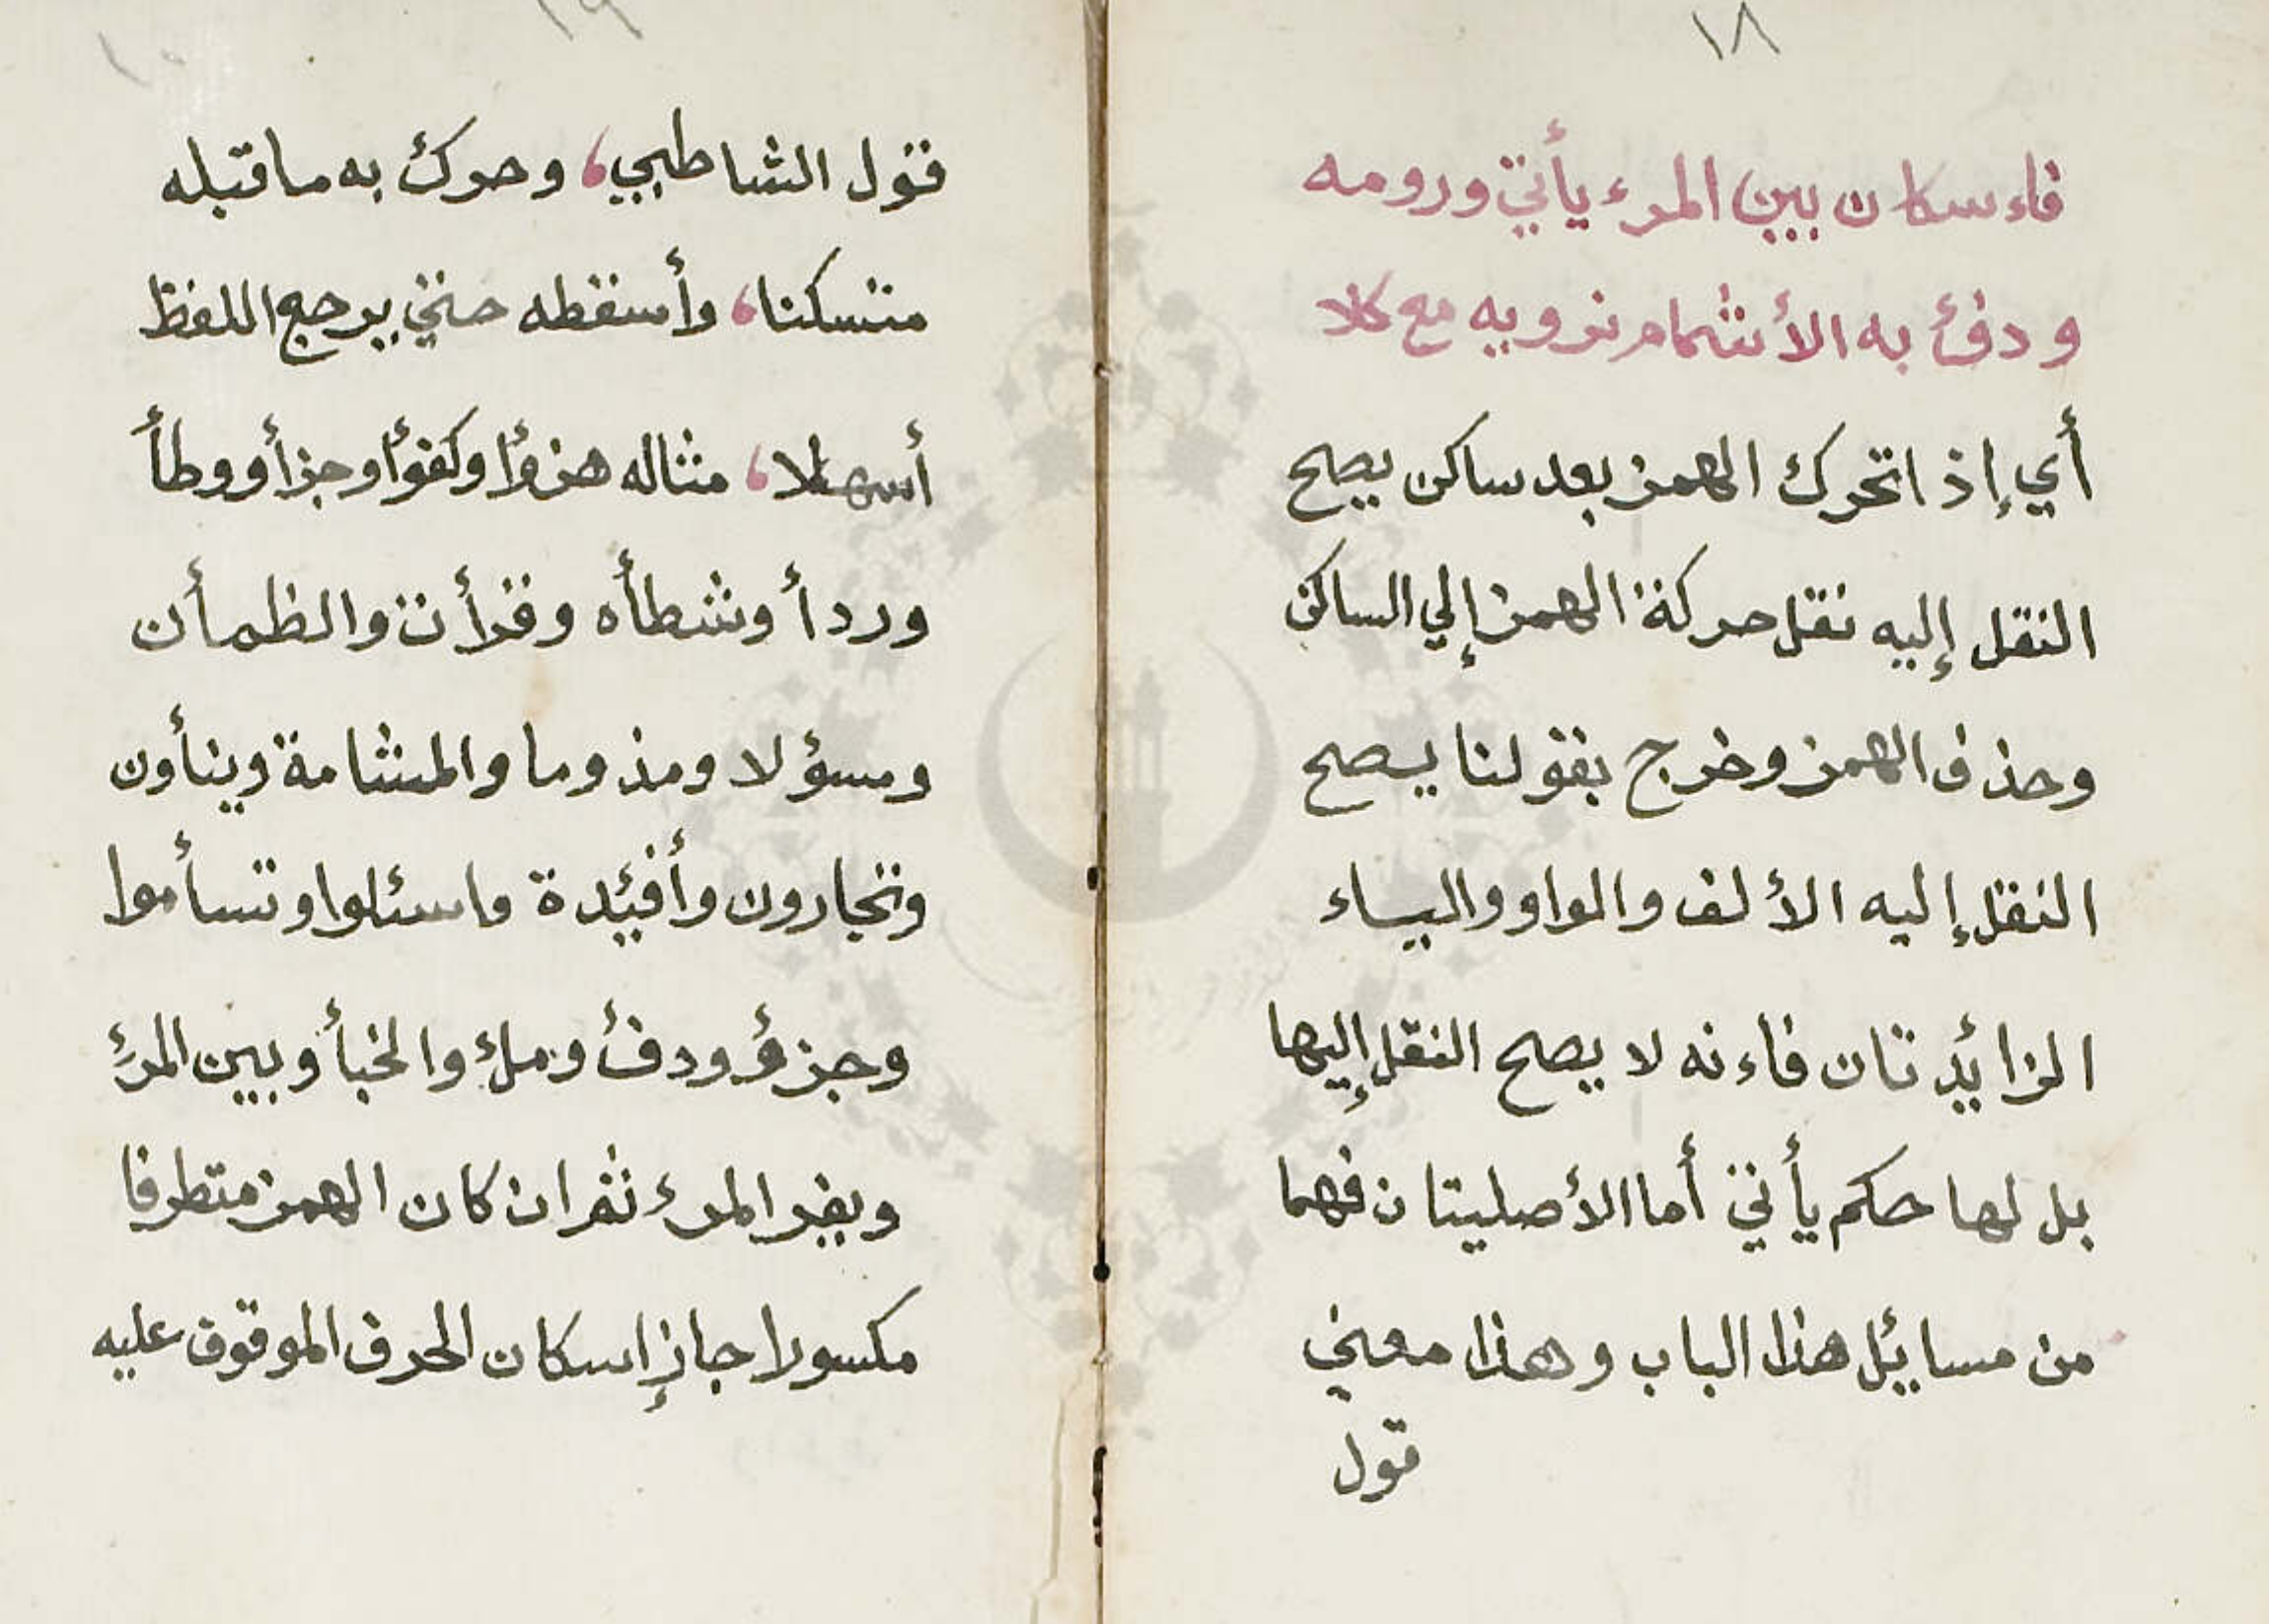 ١٨
فاءسكان بين المرء يأتي ورومه
ودفئ به الأشمام نرويه مع كلا
أي إذا تحرك الهمز بعد ساكن يصح
النقل إليه نقل حركة الهمز إلي الساكن
وحذف الهمز وخرج بقولنا يصح
النقل إليه الألف والواو والياء
الزائدتان فاءنه لا يصح النقل إليها
بل لها حكم يأتي أما الأصليتان فهما
من مسائل هذا الباب وهذا معني
قول
١٩
قول الشاطبي، وحرك به ما قبله
متسكنا، وأسقطه حتي يرجع اللفظ
أسهلا، مثاله هزؤا وكفؤا وجزأ ووطأ
وردأ وشطأه وقرأن والظمأن
ومسؤلا ومذوما والمشامة وينأون
وتجارون وأفئدة واسئلوا وتسأموا
وجزؤ ودفئ وملء والخبأ وبين المرء
ويفر المرء ثم ان كان الهمز متطرفا
مكسورا جاز إسكان الحرف الموقوف عليه